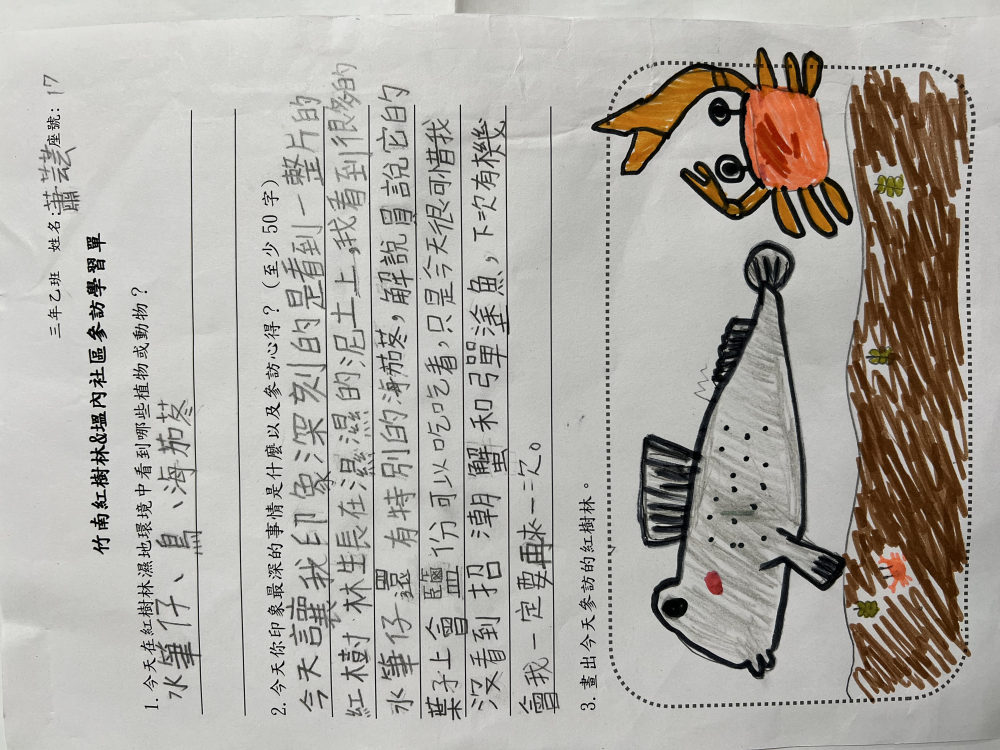 三年乙班 姓名:蕭芸 座號:17
竹南紅樹林&塭內社區參訪學習單
1. 今天在紅樹林濕地環境中看到哪些植物或動物？
水筆仔、鳥、海茄苳
2. 今天你印象最深的事情是什麼以及參訪心得？(至少 50 字)
今天讓我印象深刻的是看到一整片的
紅樹林生長在濕濕的泥土上,我看到很多的
水筆仔還有特別的海茄苳,解說員說它的
葉子上會鹽份可以吃吃看,只是今天很可惜我
沒看到招潮蟹和彈塗魚,下次有機
會我一定要再來一次。
3. 畫出今天參訪的紅樹林。